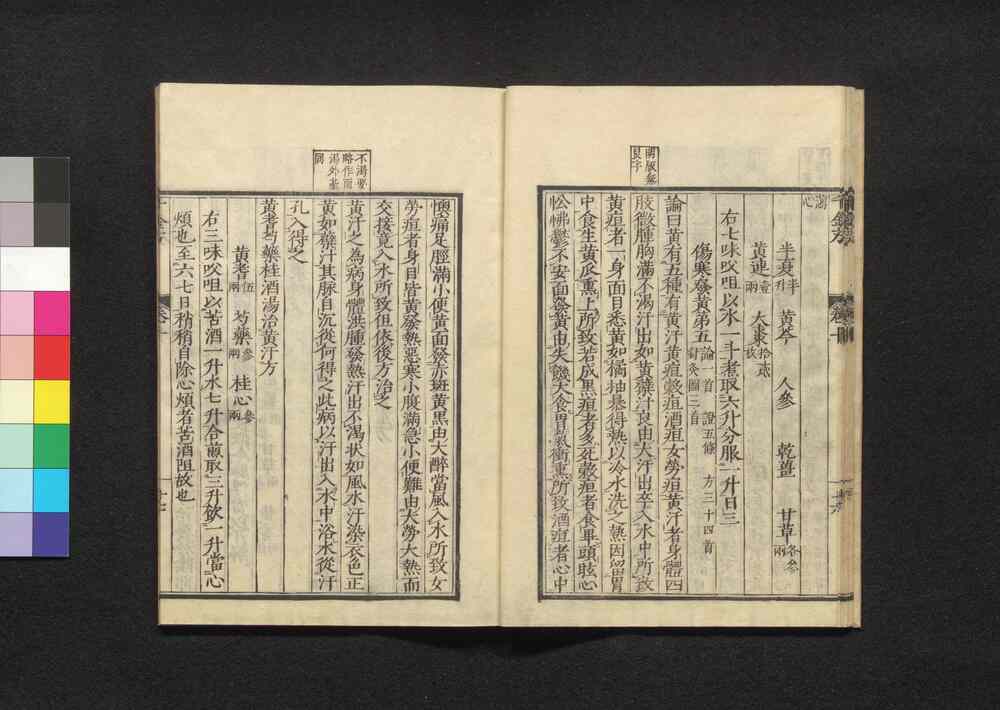 半夏半升 黄芩 人參 乾薑 甘草各參兩
黄連壹兩 大棗拾貳枚
右七味㕮咀以水一斗煮取六升分服一升日三
傷寒發黄第五論一首 證五條 方三十四首 針灸圖三首
論曰黄有五種有黄汗黄疸穀疸酒疸女勞疸黄汗者身體四
肢微腫胸滿不渴汗出如黄蘗汁良由大汗出卒入水中所致
黄疸者一身面目悉黄如橘柚暴得熱以冷水洗之熱因留胃
中食生黄瓜熏上所致若成黑疸者多死穀疸者食畢頭眩心
忪怫鬱不安面發黄由失飢大食胃氣衝熏所致酒疸者心中
懊痛足脛滿小便黄面發赤斑黄黑由大醉當風入水所致女
勞疸者身目皆黄發熱惡寒小腹滿急小便難由大勞大熱而
交接竟入水所致但依後方治之
黄汗之為病身體洪腫發熱汗出不渴状如風水汗染衣色正
黄如蘗汁其脉自沉從何得之此病以汗出入水中浴水從汗
孔入得之
黄耆芍藥桂酒湯治黄汗方
黄耆伍兩 芍藥參兩 桂心參兩
右三味㕮咀以苦酒一升水七升合煎取三升飲一升當心
煩也至六七日稍稍自除心煩者苦酒阻故也
不渴要
略作而
渴外臺
同